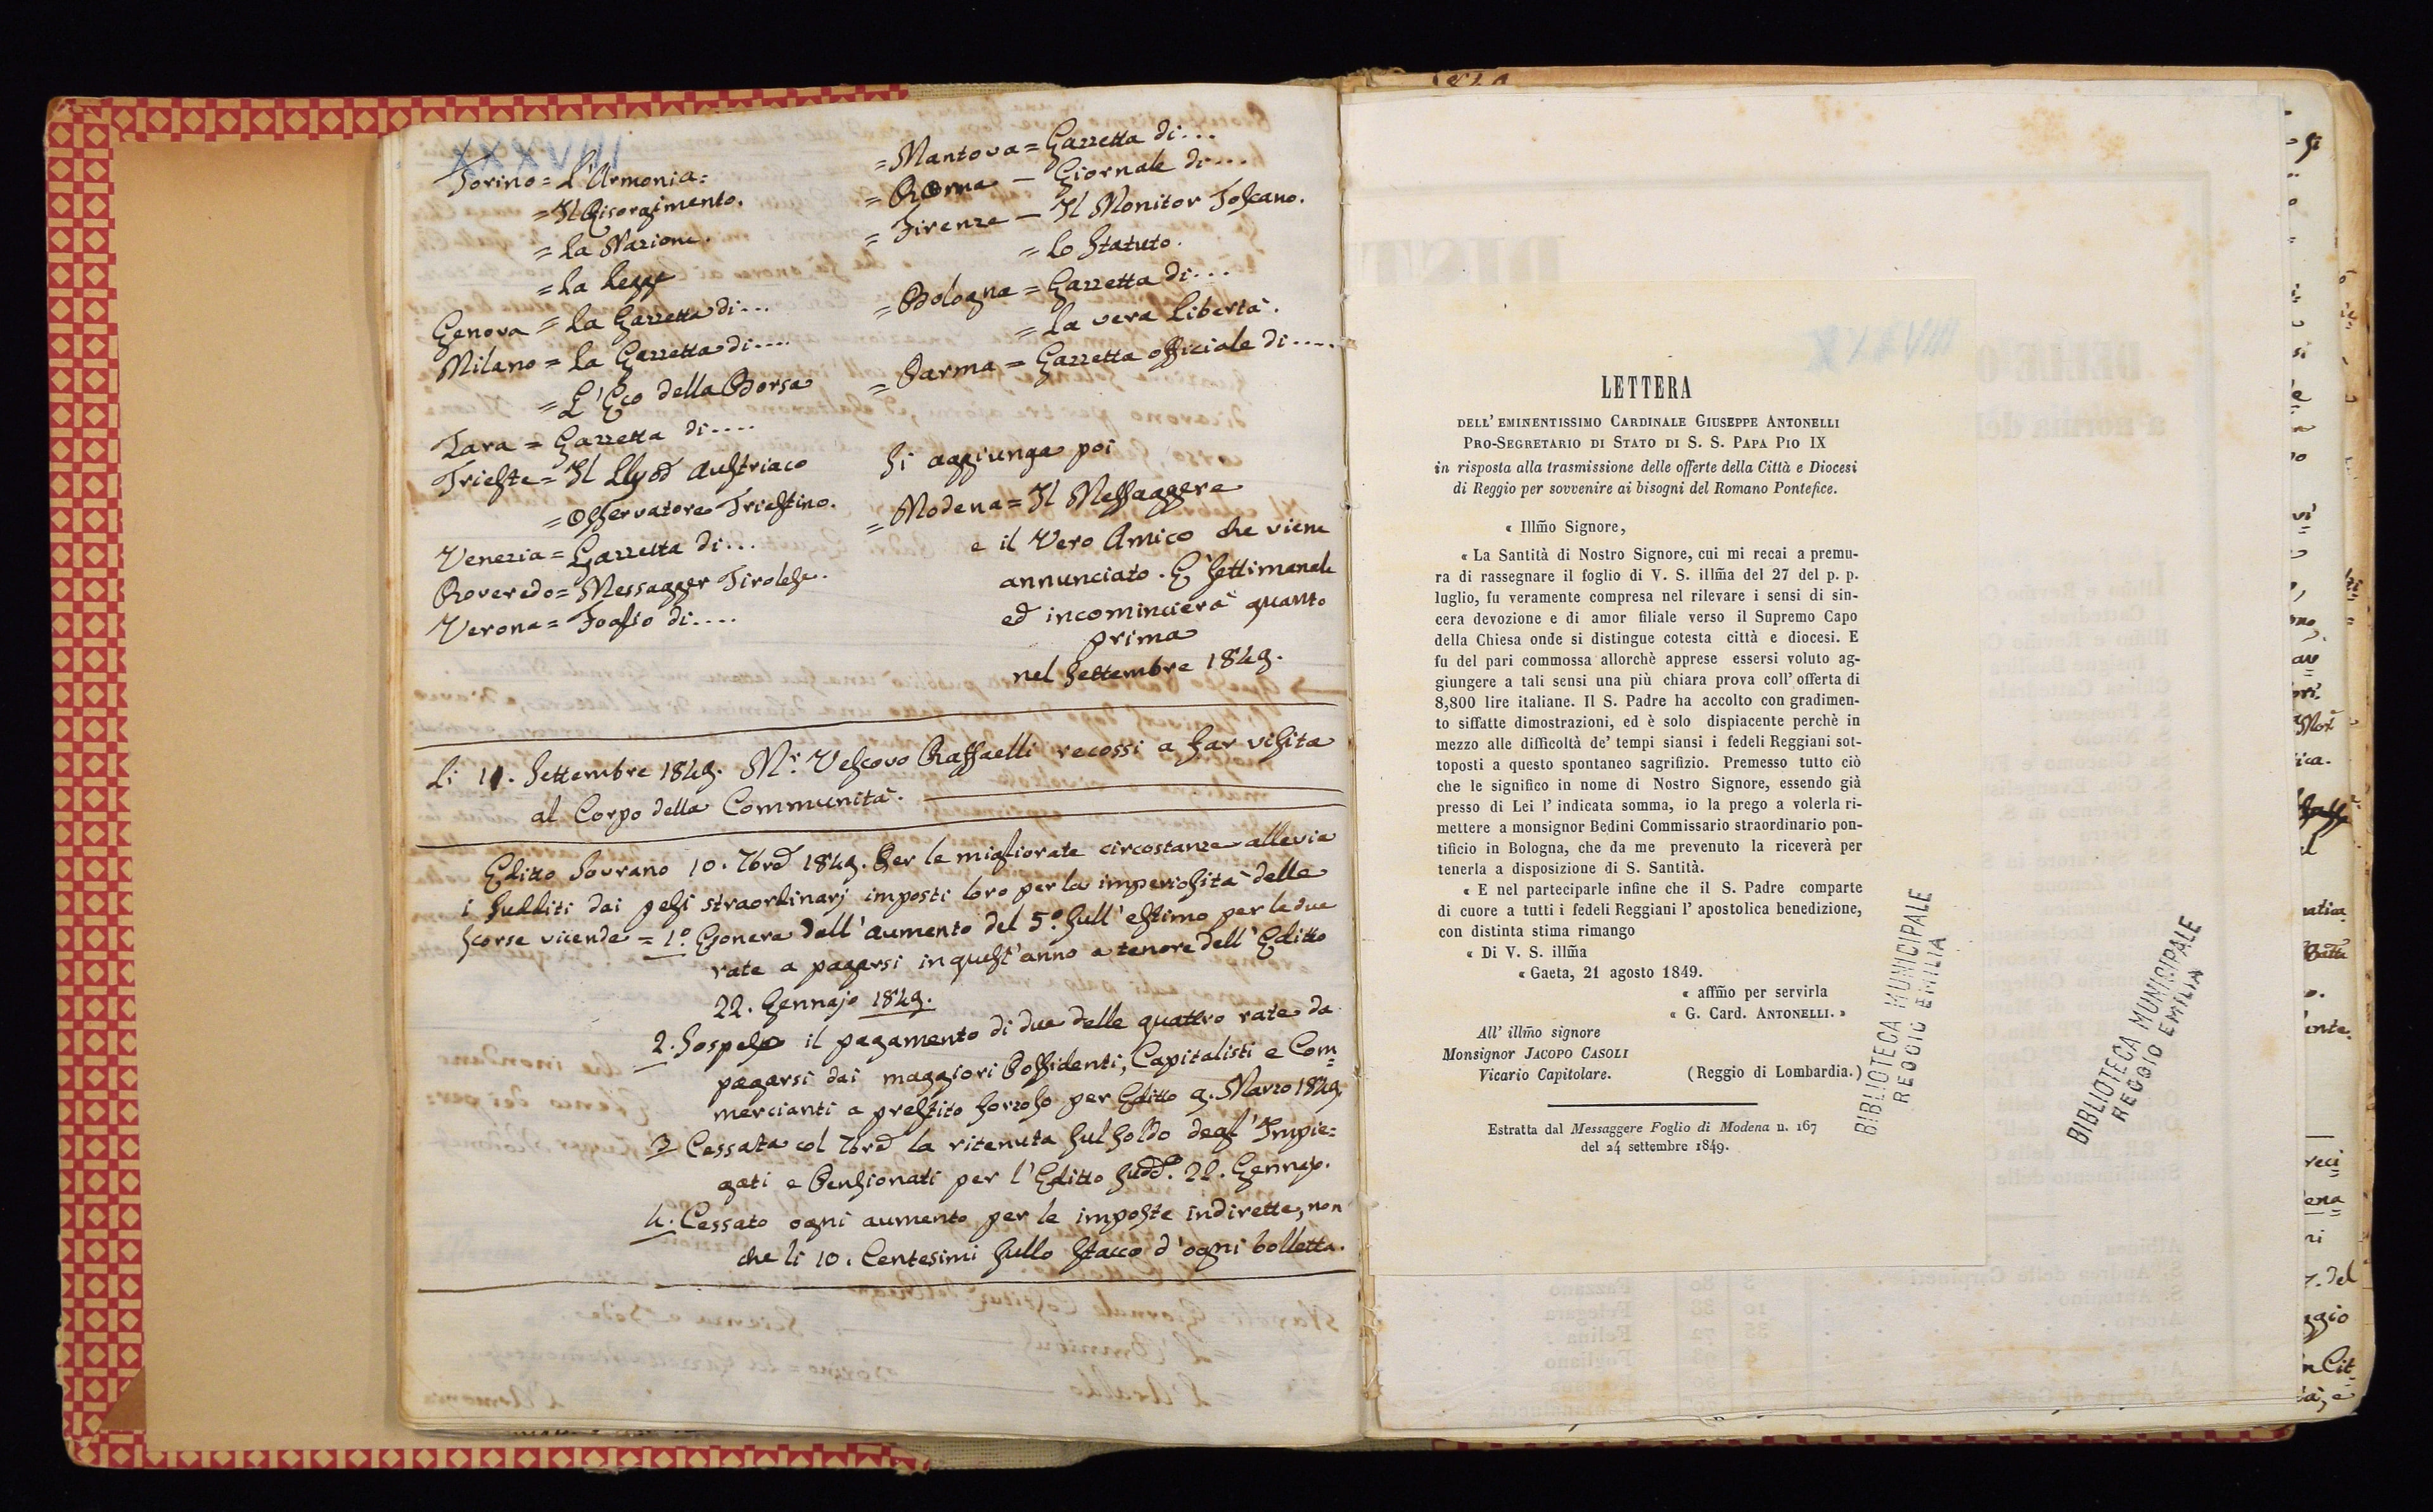 XXXVIII
Torino = L'Armonia =
= Il Risorgimento.
= La Nazione.
= La Legge
Genova = La Gazzetta di...
Milano = La Gazzetta di....
= L'Eco della Borsa
Zara = Gazzetta di....
Trieste = Il Llyod Austriaco
= Osservatore Triestino.
Venezia = Gazzetta di...
Roveredo = Messagger Tirolese.
Verona = Foglio di....
= Mantova = Gazzetta di...
= Roma — Giornale di...
= Firenze — Il Monitor Toscano.
= Lo Statuto.
= Bologna = Gazzetta di...
= La vera Libertà.
= Parma = Gazzetta officiale di....
Si aggiunga poi
= Modena = Il Messaggere
e il Vero Amico che viene
annunciato. E' settimanale
ed incomincierà quanto
prima
nel Settembre 1849.
Li 11. Settembre 1849. Mr. Vescovo Raffaelli recossi a far visita
al Corpo della Communità.
Editto Sovrano 10. 7bre 1849. Per le migliorate circostanze allevia
i sudditi dai pesi straordinarj imposti loro per la imperiosità delle
scorse vicende = 1.º Esonera dall'aumento del 5.º sull'estimo per le due
rate a pagarsi in quest'anno a tenore dell'Editto
22. Gennajo 1849.
2. Sospeso il pagamento di due delle quattro rate da
pagarsi dai maggiori Possidenti, Capitalisti e Com=
mercianti a prestito forzoso per Editto 9. Marzo 1849.
3 Cessata col 7bre la ritenuta sul soldo degl'Impie=
gati e Pensionati per l'Editto sudd.º 22. Gennajo.
4. Cessato ogni aumento per le imposte indirette, non
che li 10. Centesimi sullo stacco d'ogni bolletta.
XXXVIII
LETTERA
DELL' EMINENTISSIMO CARDINALE GIUSEPPE ANTONELLI
PRO-SEGRETARIO DI STATO DI S. S. PAPA PIO IX
in risposta alla trasmissione delle offerte della Città e Diocesi
di Reggio per sovvenire ai bisogni del Romano Pontefice.
« Illm̃o Signore,
« La Santità di Nostro Signore, cui mi recai a premu-
ra di rassegnare il foglio di V. S. illm̃a del 27 del p. p.
luglio, fu veramente compresa nel rilevare i sensi di sin-
cera devozione e di amor filiale verso il Supremo Capo
della Chiesa onde si distingue cotesta città e diocesi. E
fu del pari commossa allorchè apprese essersi voluto ag-
giungere a tali sensi una più chiara prova coll' offerta di
8,800 lire italiane. Il S. Padre ha accolto con gradimen-
to siffatte dimostrazioni, ed è solo dispiacente perchè in
mezzo alle difficoltà de' tempi siansi i fedeli Reggiani sot-
toposti a questo spontaneo sagrifizio. Premesso tutto ciò
che le significo in nome di Nostro Signore, essendo già
presso di Lei l' indicata somma, io la prego a volerla ri-
mettere a monsignor Bedini Commissario straordinario pon-
tificio in Bologna, che da me prevenuto la riceverà per
tenerla a disposizione di S. Santità.
« E nel parteciparle infine che il S. Padre comparte
di cuore a tutti i fedeli Reggiani l' apostolica benedizione,
con distinta stima rimango
« Di V. S. illm̃a
« Gaeta, 21 agosto 1849.
« affm̃o per servirla
« G. Card. ANTONELLI. »
All' illm̃o signore
Monsignor JACOPO CASOLI
Vicario Capitolare.
(Reggio di Lombardia.)
Estratta dal Messaggere Foglio di Modena n. 167
del 24 settembre 1849.
BIBLIOTECA MUNICIPALE
REGGIO EMILIA
BIBLIOTECA MUNICIPALE
REGGIO EMILIA